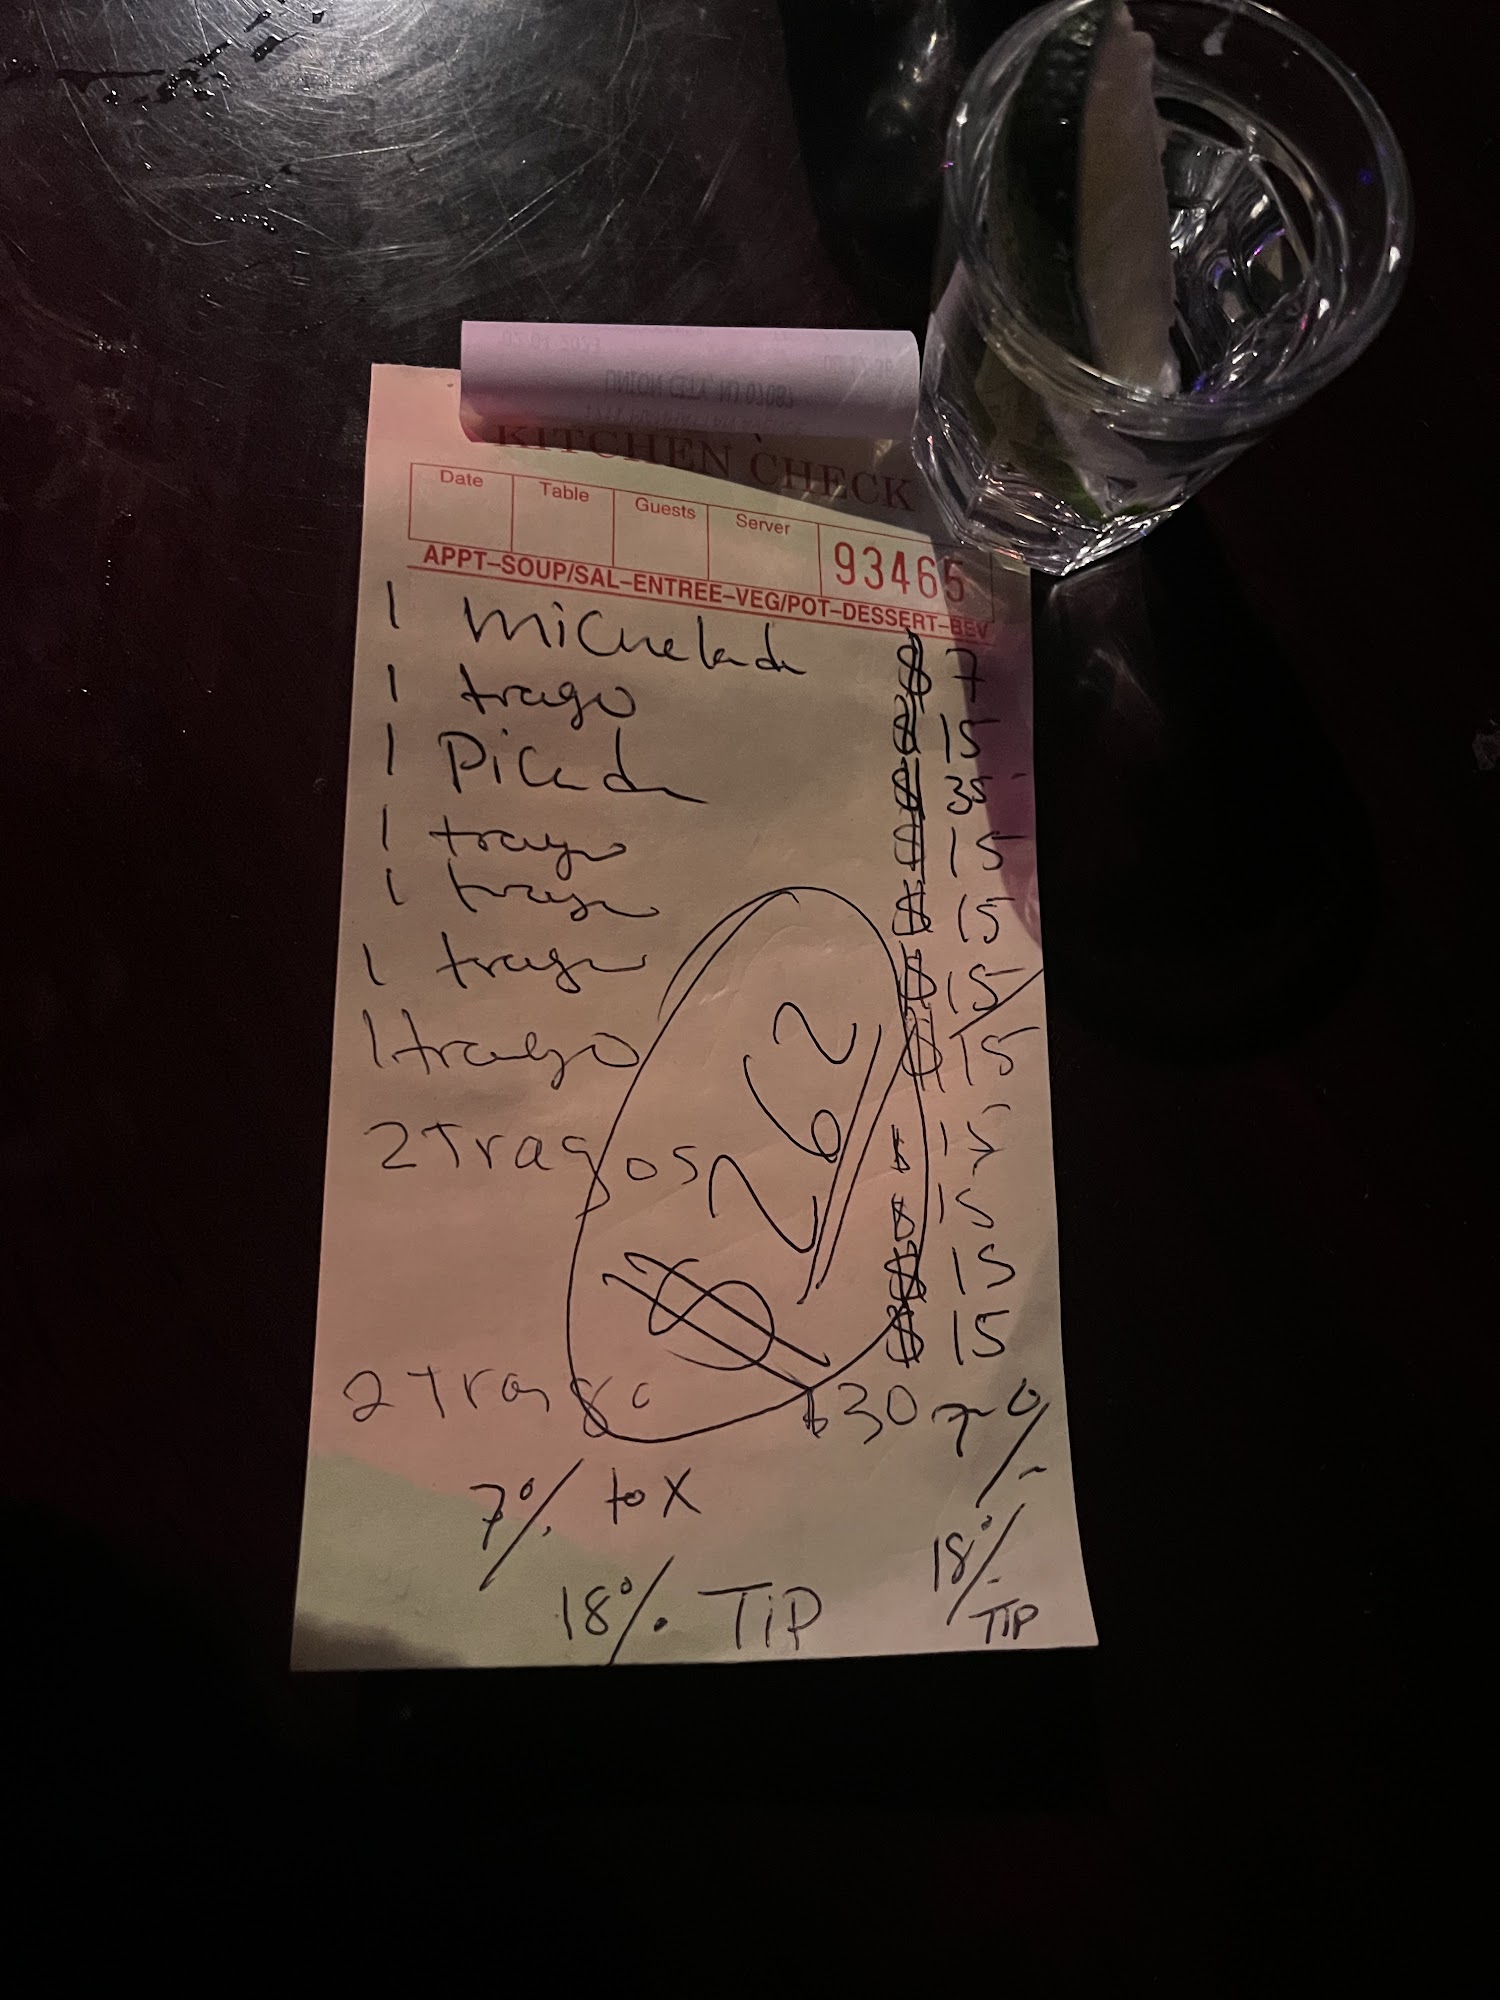 KITCHEN CHECK
Date Table Guests Server 93465
APPT–SOUP/SAL–ENTREE–VEG/POT–DESSERT–BEV
1 Michelada $ 7
1 trago $ 15
1 Picada $ 35
1 trago $ 15
1 trago $ 15
1 trago $ 15
1 trago $ 15
2 Tragos $ 15
$ 15
$ 15
$ 15
$ 262
2 Trago $30
7% tax 7%
18% TIP 18% TIP